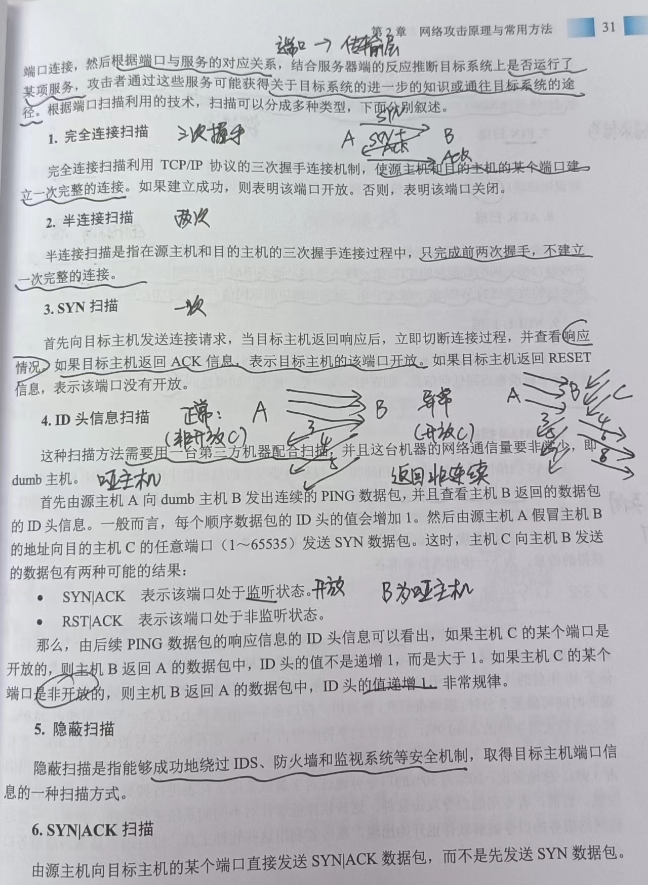 第2章 网络攻击原理与常用方法 31
端口 → 传输层
端口连接，然后根据端口与服务的对应关系，结合服务器端的反应推断目标系统上是否运行了
某项服务，攻击者通过这些服务可能获得关于目标系统的进一步的知识或通往目标系统的途
径。根据端口扫描利用的技术，扫描可以分成多种类型，下面分别叙述。
SYN
1. 完全连接扫描 三次握手 A SYN+ B
Ack
Ack
完全连接扫描利用 TCP/IP 协议的三次握手连接机制，使源主机和目的主机的某个端口建
立一次完整的连接。如果建立成功，则表明该端口开放。否则，表明该端口关闭。
2. 半连接扫描 两次
半连接扫描是指在源主机和目的主机的三次握手连接过程中，只完成前两次握手，不建立
一次完整的连接。
3. SYN 扫描 一次
首先向目标主机发送连接请求，当目标主机返回响应后，立即切断连接过程，并查看响应
情况。如果目标主机返回 ACK 信息，表示目标主机的该端口开放。如果目标主机返回 RESET
信息，表示该端口没有开放。
4. ID 头信息扫描 正常： A B 异常 A B C
(非开放C) 3 4 (开放C) 3 4
这种扫描方法需要用一台第三方机器配合扫描，并且这台机器的网络通信量要非常少，即
dumb 主机。 哑主机 返回非连续
首先由源主机 A 向 dumb 主机 B 发出连续的 PING 数据包，并且查看主机 B 返回的数据包
的 ID 头信息。一般而言，每个顺序数据包的 ID 头的值会增加 1。然后由源主机 A 假冒主机 B
的地址向目的主机 C 的任意端口（1～65535）发送 SYN 数据包。这时，主机 C 向主机 B 发送
的数据包有两种可能的结果：
• SYN|ACK 表示该端口处于监听状态。开放 B为哑主机
• RST|ACK 表示该端口处于非监听状态。
那么，由后续 PING 数据包的响应信息的 ID 头信息可以看出，如果主机 C 的某个端口是
开放的，则主机 B 返回 A 的数据包中，ID 头的值不是递增 1，而是大于 1。如果主机 C 的某个
端口是非开放的，则主机 B 返回 A 的数据包中，ID 头的值递增 1，非常规律。
5. 隐蔽扫描
隐蔽扫描是指能够成功地绕过 IDS、防火墙和监视系统等安全机制，取得目标主机端口信
息的一种扫描方式。
6. SYN|ACK 扫描
由源主机向目标主机的某个端口直接发送 SYN|ACK 数据包，而不是先发送 SYN 数据包。